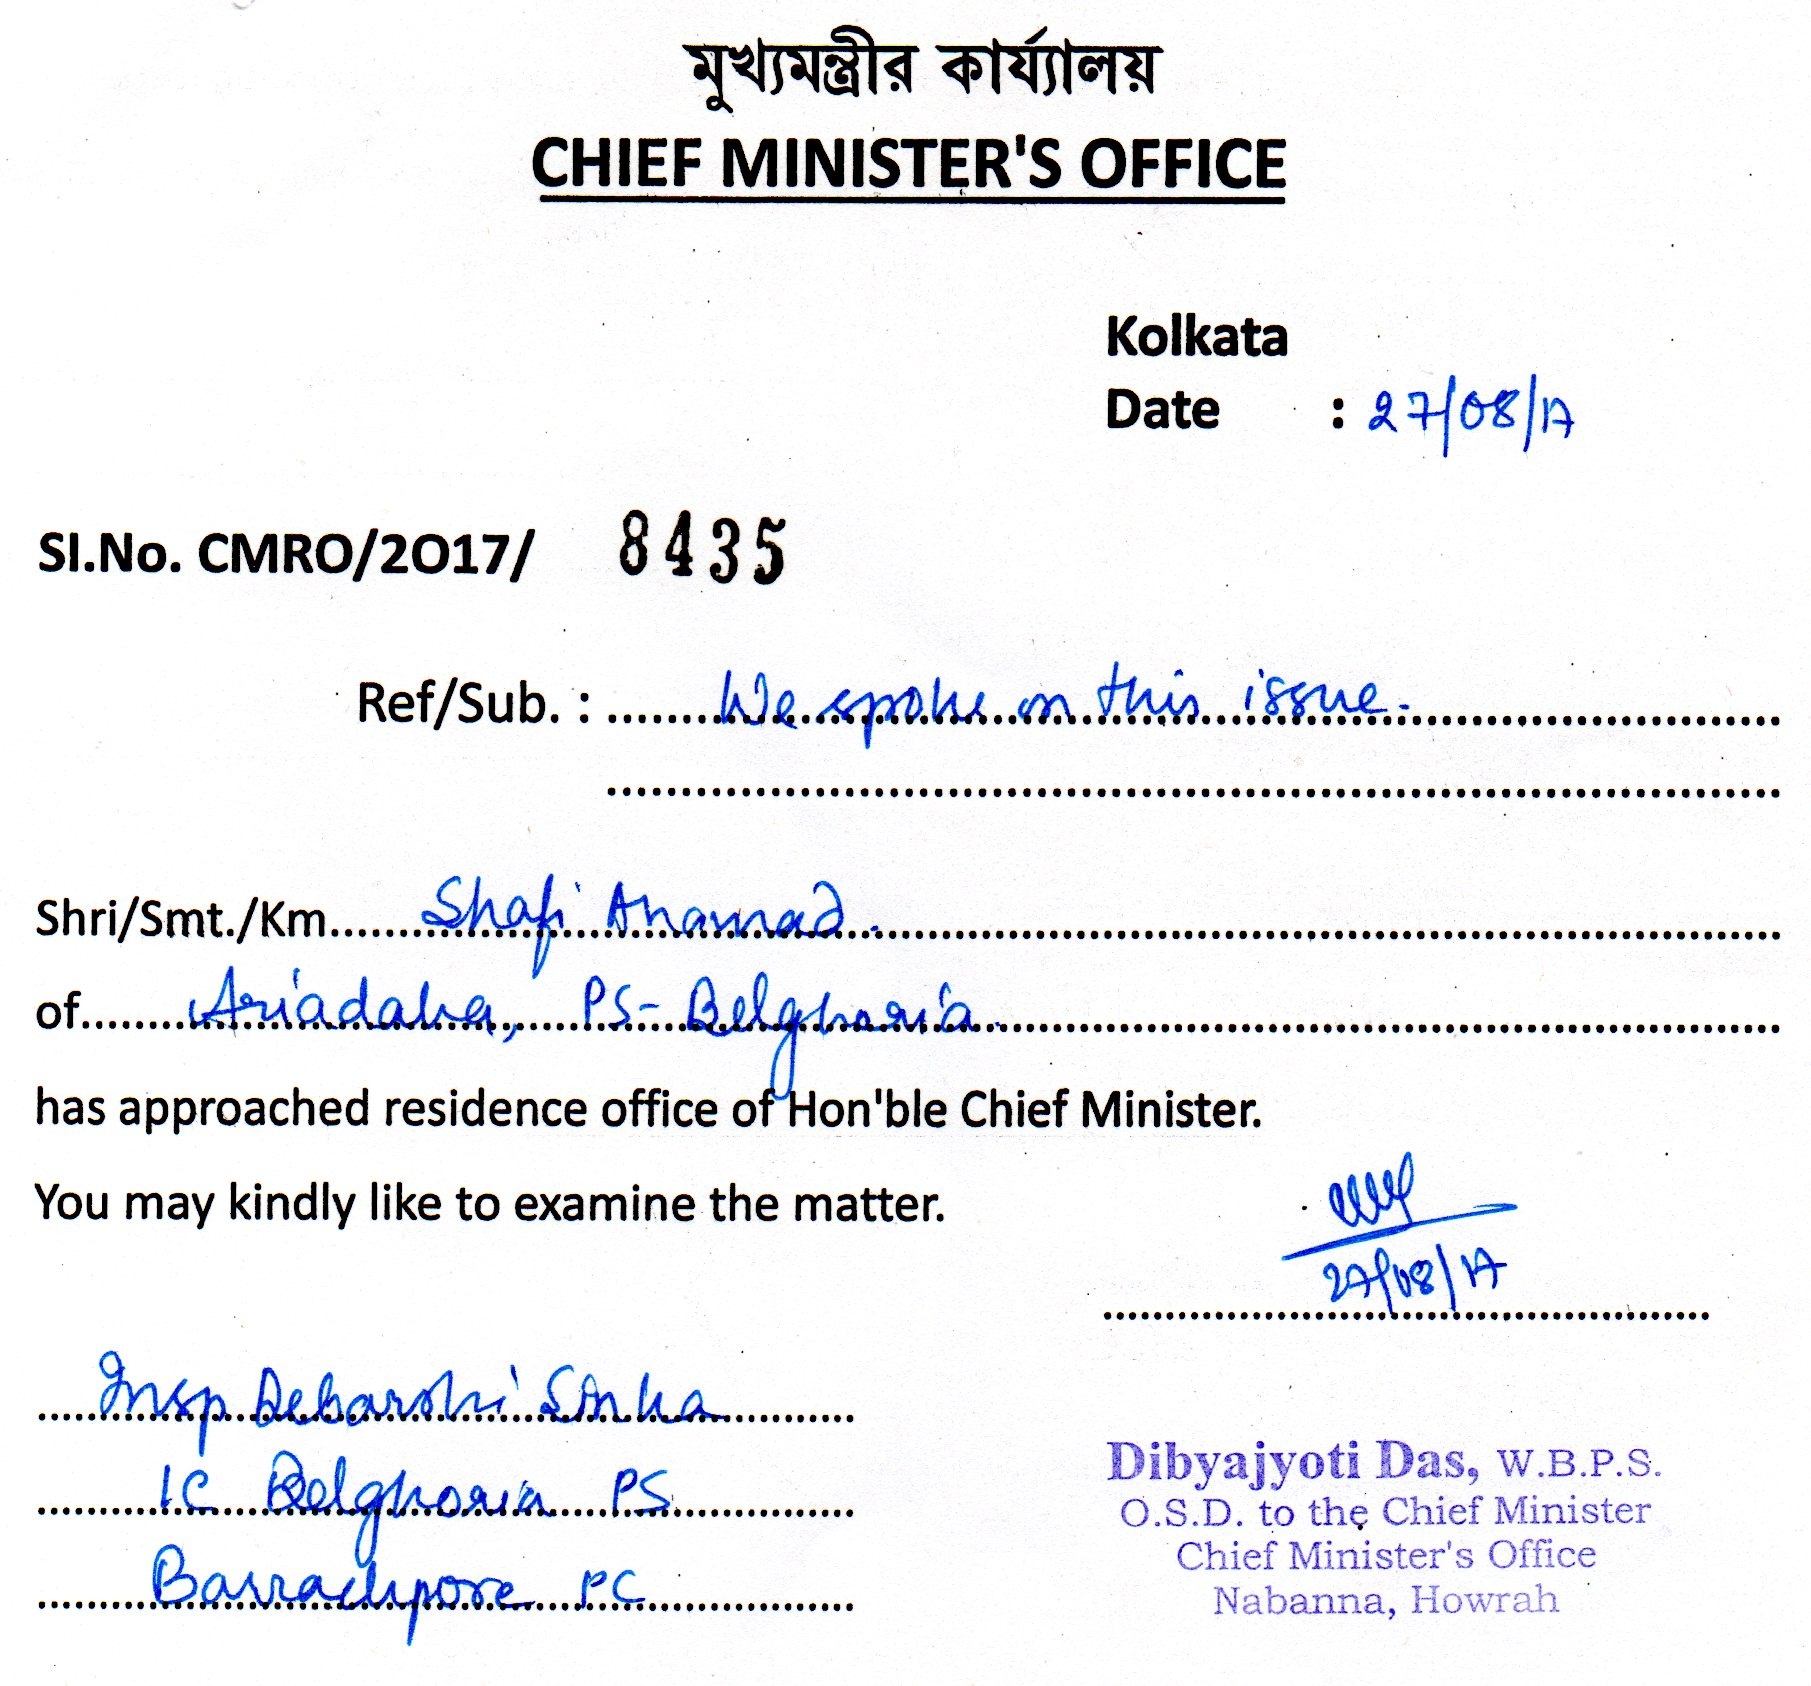 মুখ্যমন্ত্রীর কার্য্যালয়
CHIEF MINISTER'S OFFICE
Kolkata
Date : 27/08/17
Sl.No. CMRO/2O17/ 8435
Ref/Sub. : We spoke on this issue.
Shri/Smt./Km Shafi Ahamad.
of Ariadaha, PS- Belghoria
has approached residence office of Hon'ble Chief Minister.
You may kindly like to examine the matter.
27/08/17
Insp Debarshi Sinha
IC Belghoria PS
Barrackpore PC
Dibyajyoti Das, W.B.P.S.
O.S.D. to the Chief Minister
Chief Minister's Office
Nabanna, Howrah